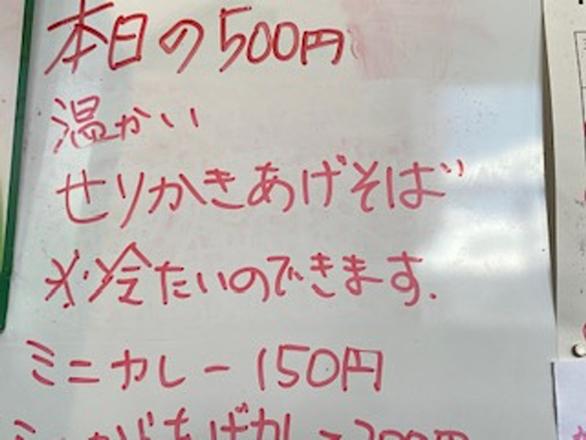 本日の500円
温かい
せりかきあげそば
※冷たいのできます.
ミニカレー150円